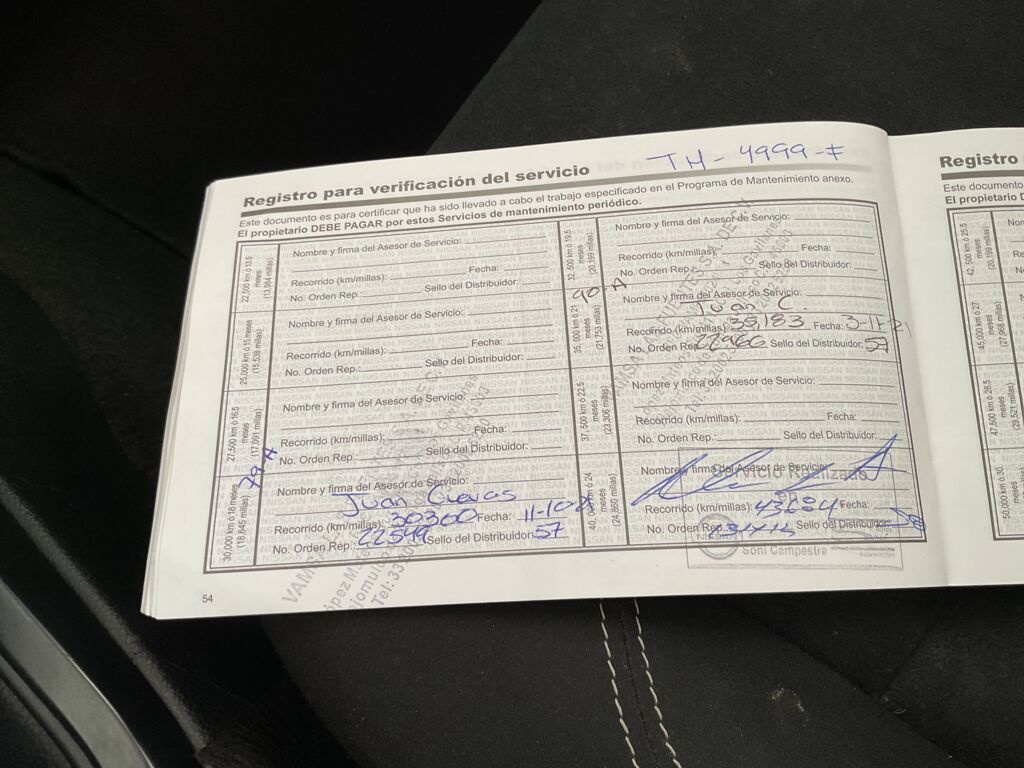 TH - 4999-F
Registro para verificación del servicio
Este documento es para certificar que ha sido llevado a cabo el trabajo especificado en el Programa de Mantenimiento anexo.
El propietario DEBE PAGAR por estos Servicios de mantenimiento periódico.
22,500 km ó 13.5
meses
(13,984 millas)
Nombre y firma del Asesor de Servicio:
Recorrido (km/millas): Fecha:
No. Orden Rep.: Sello del Distribuidor:
25,000 km ó 15 meses
(15,538 millas)
Nombre y firma del Asesor de Servicio:
Recorrido (km/millas): Fecha:
No. Orden Rep.: Sello del Distribuidor:
27,500 km ó 16.5
meses
(17,091 millas)
Nombre y firma del Asesor de Servicio:
Recorrido (km/millas): Fecha:
No. Orden Rep.: Sello del Distribuidor:
30,000 km ó 18 meses
(18,645 millas)
Nombre y firma del Asesor de Servicio:
Juan Cuevas
Recorrido (km/millas): 30300 Fecha:
No. Orden Rep.: 22549 Sello del Distribuidor: 57
32,500 km ó 19.5
meses
(20,199 millas)
Nombre y firma del Asesor de Servicio:
Recorrido (km/millas): Fecha:
No. Orden Rep.: Sello del Distribuidor:
35,000 km ó 21
meses
(21,753 millas)
Nombre y firma del Asesor de Servicio:
Juan C.
Recorrido (km/millas): 35,183 Fecha:
No. Orden Rep.: 22966 Sello del Distribuidor: 57
37,500 km ó 22.5
meses
(23,306 millas)
Nombre y firma del Asesor de Servicio:
Recorrido (km/millas): Fecha:
No. Orden Rep.: Sello del Distribuidor:
40,000 km ó 24
meses
(24,860 millas)
Nombre y firma del Asesor de Servicio:
Servicio Realizado
Recorrido (km/millas): 43684 Fecha:
No. Orden Rep.: Sello del Distribuidor:
Soni Campestre
54
Registro
Este documento
El propietario D
42,500 km ó 25.5
meses
45,000 km ó 27
meses
(27,968 millas)
47,500 km ó 28.5
meses
(29,521 millas)
50,000 km ó 30
meses